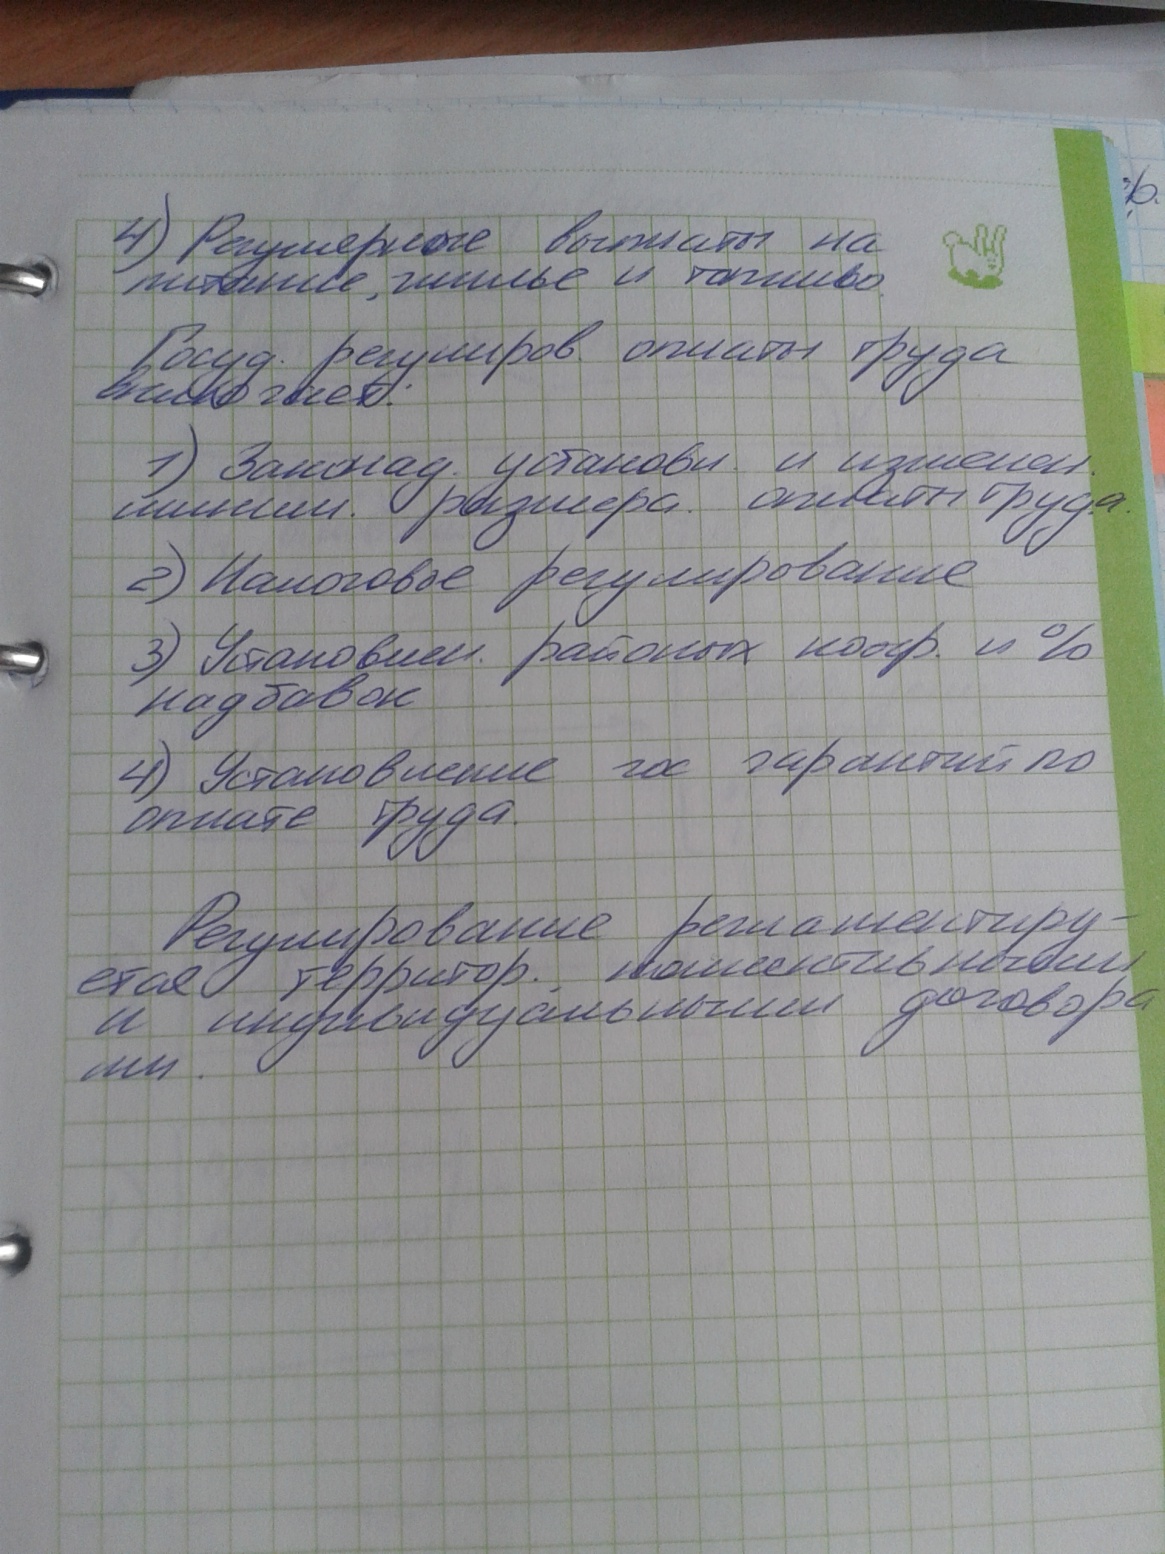 4) Регулярные выплаты на
питание, жилье и топливо.
Госуд. регулиров. оплаты труда
включает:
1) Законод. установл. и изменен.
миним. размера. оплаты труда.
2) Налоговое регулирование
3) Установлен. районых коэф. и %
надбавок
4) Установление гос гарантий по
оплате труда.
Регулирование регламентиру-
ется территор. коллективными
и индивидуальными договора
ми.